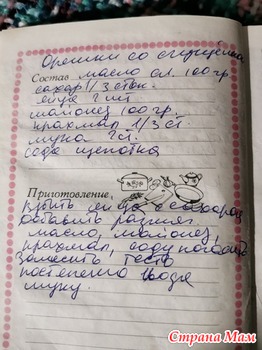 Орешки со сгущёнкой
Состав масло сл. 100 гр
сахар 1/3 стак.
яйца 2 шт
майонез 100 гр.
крахмал 1/3 ст.
мука 2 ст.
сода щепотка
Приготовление
Взбить яйца с сахаром
добавить размяг.
масло, майонез,
крахмал, соду погасить
Замесить тесто
постепенно вводя
муку.
Страна Мам